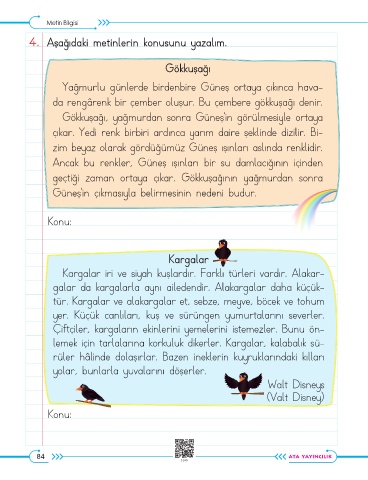 Metin Bilgisi
4. Aşağıdaki metinlerin konusunu yazalım.
Gökkuşağı
Yağmurlu günlerde birdenbire Güneş ortaya çıkınca hava-
da rengârenk bir çember oluşur. Bu çembere gökkuşağı denir.
Gökkuşağı, yağmurdan sonra Güneş'in görülmesiyle ortaya
çıkar. Yedi renk birbiri ardınca yarım daire şeklinde dizilir. Bi-
zim beyaz olarak gördüğümüz Güneş ışınları aslında renklidir.
Ancak bu renkler, Güneş ışınları bir su damlacığının içinden
geçtiği zaman ortaya çıkar. Gökkuşağının yağmurdan sonra
Güneş'in çıkmasıyla belirmesinin nedeni budur.
Konu:
Kargalar
Kargalar iri ve siyah kuşlardır. Farklı türleri vardır. Alakar-
galar da kargalarla aynı ailedendir. Alakargalar daha küçük-
tür. Kargalar ve alakargalar et, sebze, meyve, böcek ve tohum
yer. Küçük canlıları, kuş ve sürüngen yumurtalarını severler.
Çiftçiler, kargaların ekinlerini yemelerini istemezler. Bunu ön-
lemek için tarlalarına korkuluk dikerler. Kargalar, kalabalık sü-
rüler hâlinde dolaşırlar. Bazen ineklerin kuyruklarındaki kılları
yolar, bunlarla yuvalarını döşerler.
Walt Disneys
(Valt Disney)
Konu:
84
ATA YAYINCILIK